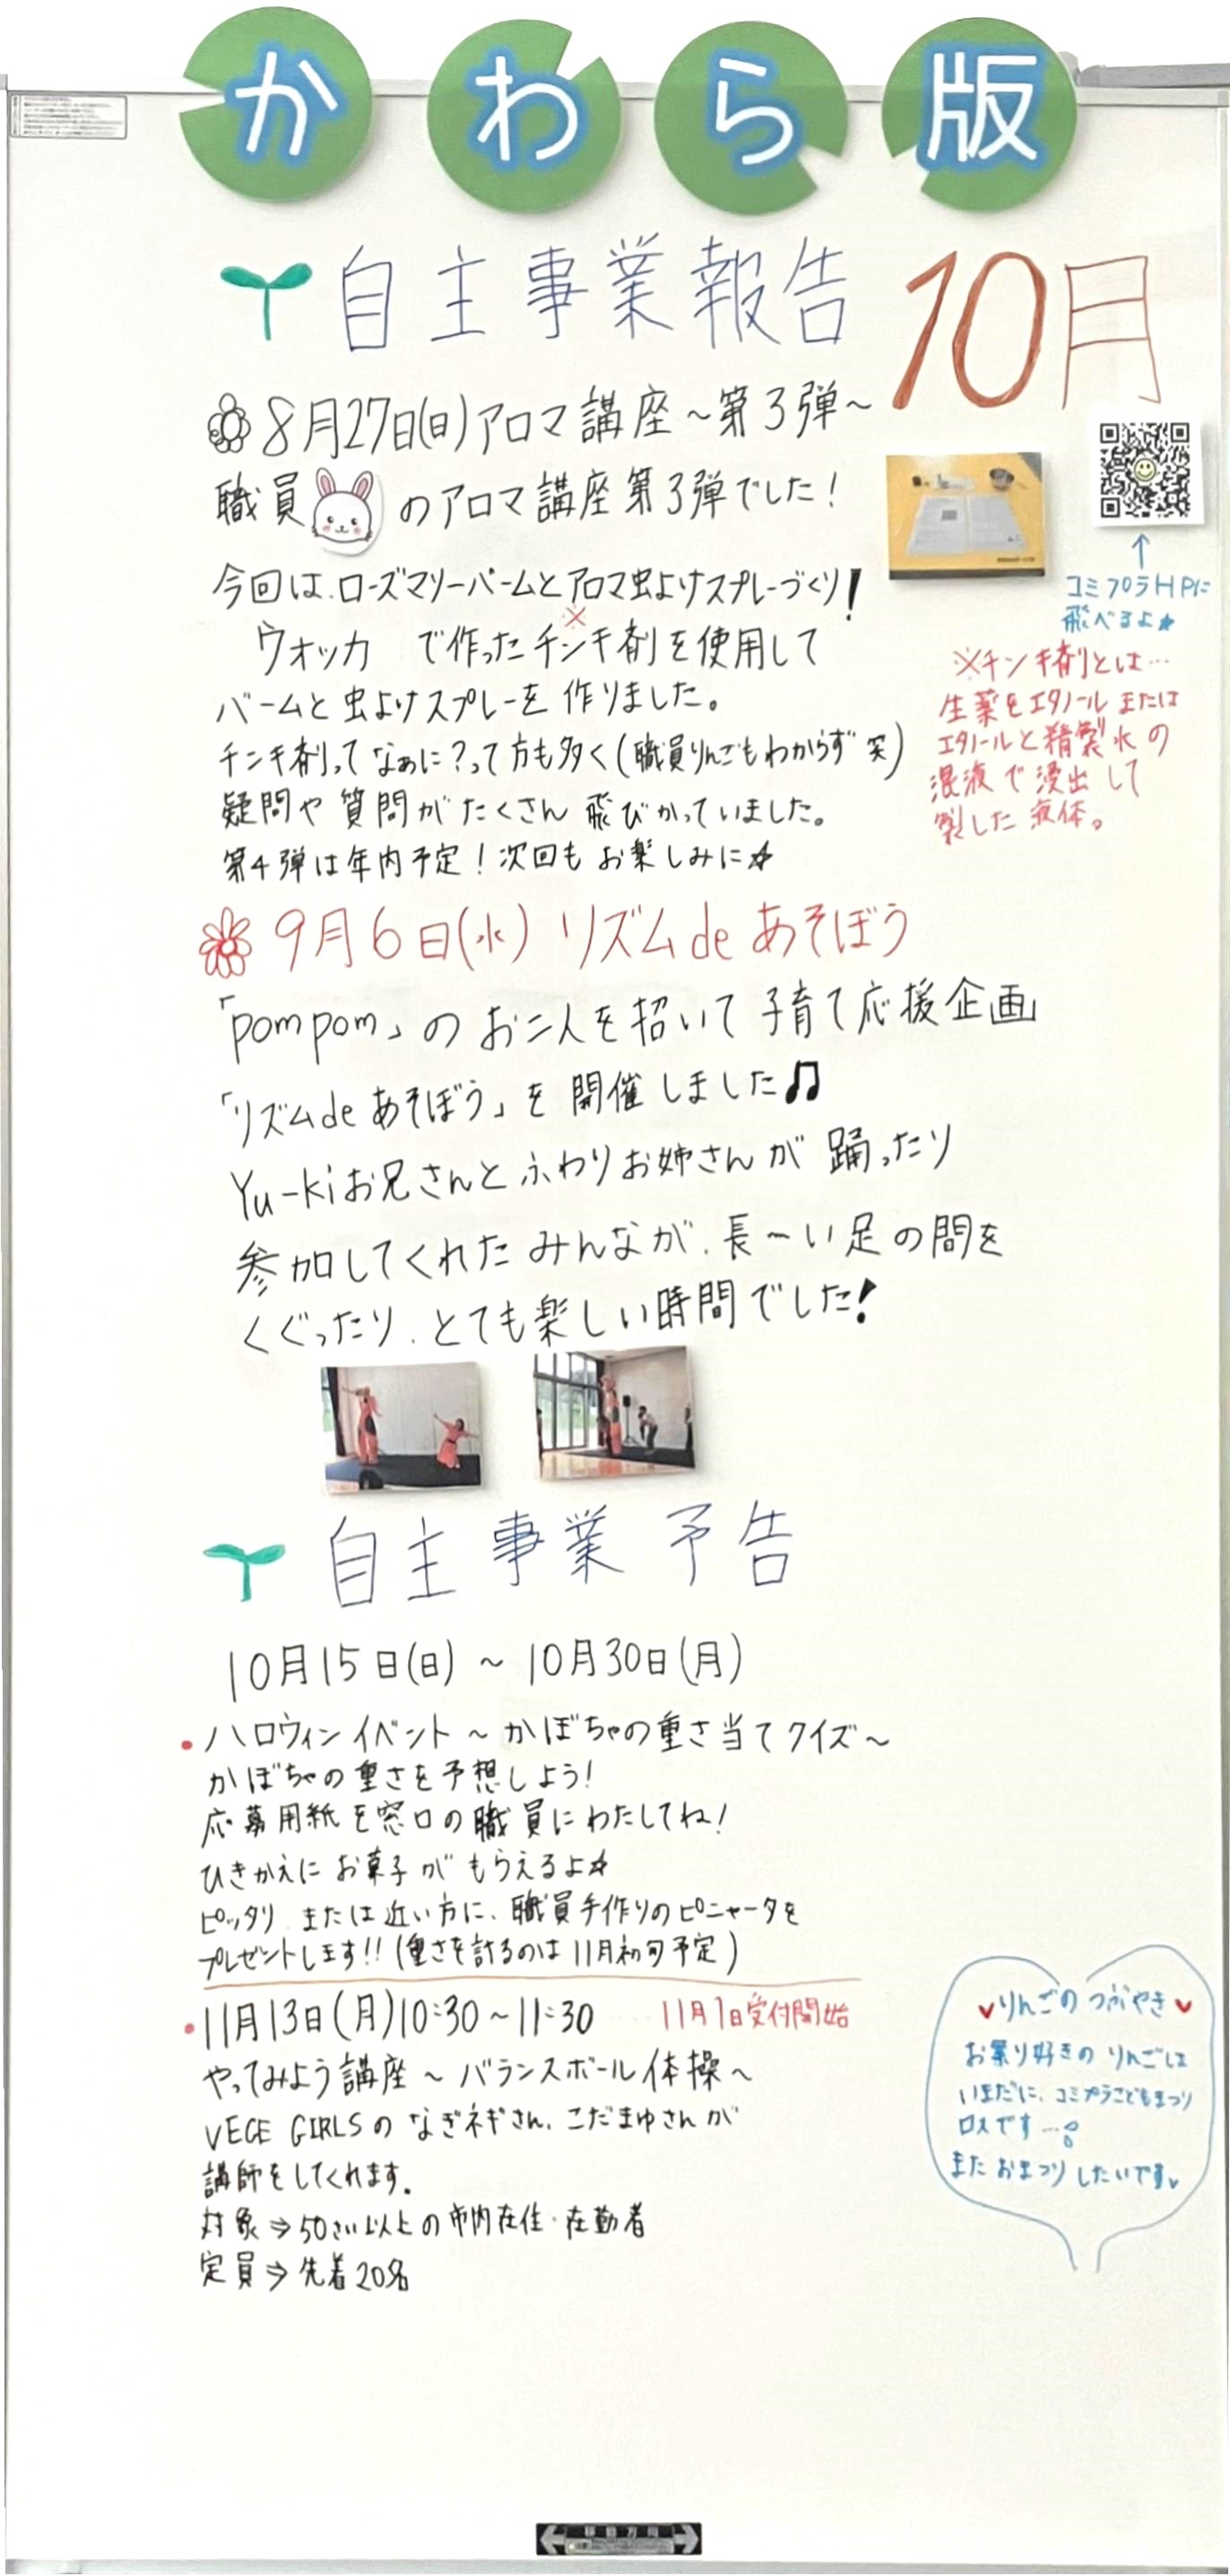 かわら版
自主事業報告
10月
8月27日(日)アロマ講座~第3弾~
職員のアロマ講座第3弾でした!
今回は、ローズマリーバームとアロマ虫よけスプレーづくり!
※
ウォッカ で作ったチンキ剤を使用して
バームと虫よけスプレーを作りました。
チンキ剤ってなぁに?って方も多く(職員りんごもわからず笑)
疑問や質問がたくさん飛びかっていました。
第4弾は年内予定!次回もお楽しみに☆
↑
コミプラHPに
飛べるよ☆
※チンキ剤とは…
生薬をエタノールまたは
エタノールと精製水の
混液で浸出して
製した液体。
9月6日(水) リズムdeあそぼう
「pompom」のお二人を招いて子育て応援企画
「リズムdeあそぼう」を開催しました♫
Yu-kiお兄さんとふわりお姉さんが踊ったり
参加してくれたみんなが、長~い足の間を
くぐったり、とても楽しい時間でした!
自主事業予告
10月15日(日)~10月30日(月)
・ハロウィンイベント~かぼちゃの重さ当てクイズ~
かぼちゃの重さを予想しよう!
応募用紙を窓口の職員にわたしてね!
ひきかえにお菓子がもらえるよ☆
ピッタリ、または近い方に、職員手作りのピニャータを
プレゼントします!!(重さを計るのは11月初旬予定)
・11月13日(月)10:30~11:30 ……11月1日受付開始
やってみよう講座~バランスボール体操~
VEGE GIRLSのなぎネギさん、こだまゆさんが
講師をしてくれます。
対象⇒50さい以上の市内在住・在勤者
定員⇒先着20名
♥りんごのつぶやき♥
お祭り好きのりんごは
いまだに、コミプラこどもまつり
ロスです…
またおまつりしたいです♥